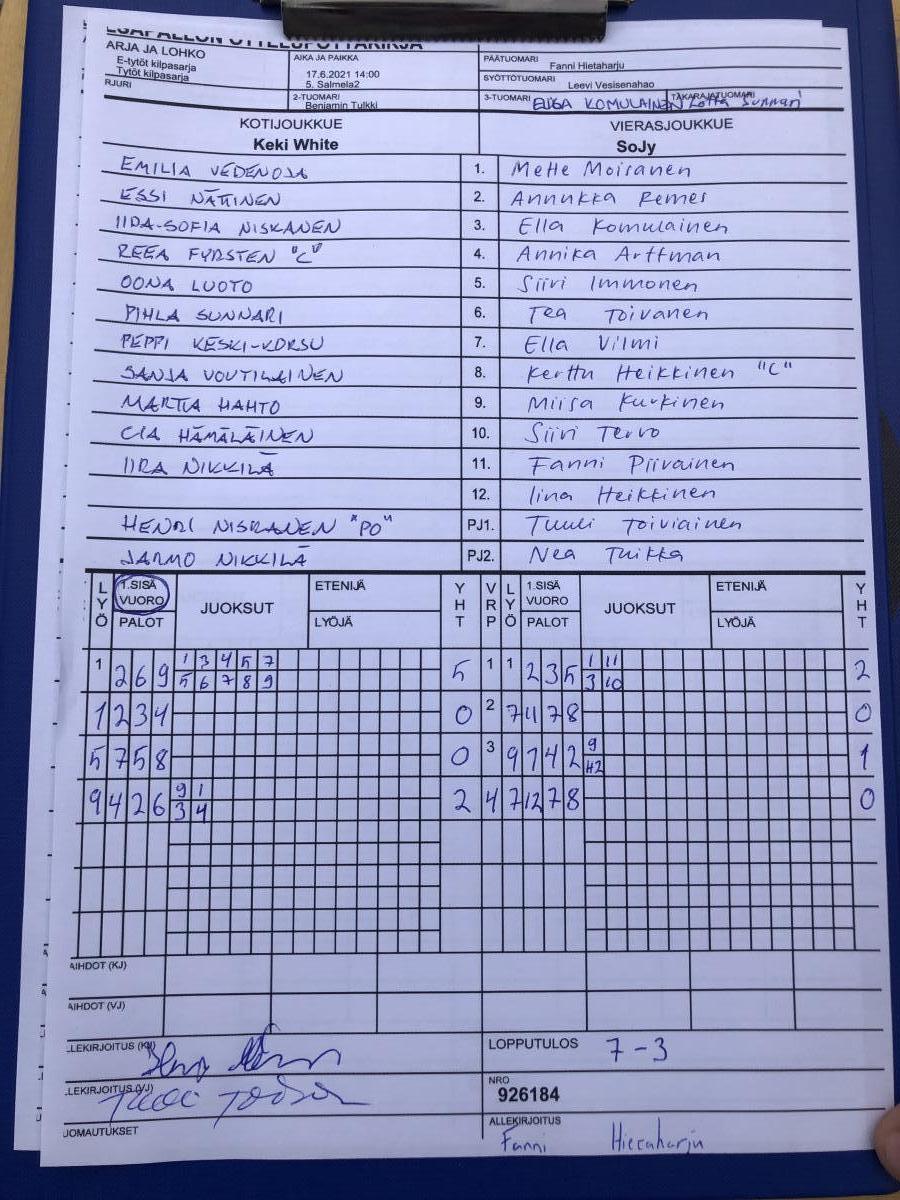 ARJA JA LOHKO
E-tytöt kilpasarja
Tytöt kilpasarja
RJURI
AIKA JA PAIKKA
17.6.2021 14:00
5, Salmela2
2-TUOMARI
Benjamin Tulkki
PÄÄTUOMARI
Fanni Hietaharju
SYÖTTÖTUOMARI
Leevi Vesisenaho
3-TUOMARI KOMULAINEN TAKARAJATUOMARI Lotta Sunnari
KOTIJOUKKUE VIERASJOUKKUE
Keki White SoJy
EMILIA VEDENOJA 1. Mette Moisanen
ESSI NÄTTINEN 2. Annukka Remes
IIDA-SOFIA NISKANEN 3. Ella Komulainen
REEA FYRSTEN "C" 4. Annika Arffman
OONA LUOTO 5. Siiri Immonen
PIHLA SUNNARI 6. Tea Toivanen
PEPPI KESKI-KORSU 7. Ella Vilmi
SANJA VOUTILAINEN 8. Kerttu Heikkinen "C"
MARTTA HAHTO 9. Miisa Kurkinen
CIA HÄMÄLÄINEN 10. Siiri Tervo
IIRA NIKKILÄ 11. Fanni Piirainen
12. Iina Heikkinen
HENRI NISKANEN "PO" PJ1. Tuuli Toiviainen
JARMO NIKKILÄ PJ2. Nea Tuikka
LYÖ 1.SISÄ VUORO PALOT JUOKSUT ETENIJÄ LYÖJÄ YHT VRP LYÖ 1.SISÄ VUORO PALOT JUOKSUT ETENIJÄ LYÖJÄ YHT
1 2 6 9 1 3 4 5 7 5 1 1 2 3 5 1 11 2
5 6 7 8 9 3 10
1 2 3 4 0 2 7 4 7 8 0
5 7 5 8 0 3 9 7 4 2 9 1
9 4 2 6 9 1 2 4 7 12 7 8 0
3 4
AIHDOT (KJ)
AIHDOT (VJ)
LLEKIRJOITUS (KJ)
LOPPUTULOS 7-3
LLEKIRJOITUS (VJ)
NRO
926184
UOMAUTUKSET
ALLEKIRJOITUS
Fanni Hietaharju